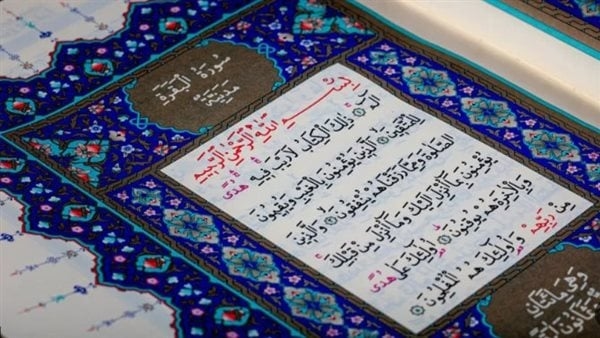 سُورَةُ الْبَقَرَةِ
مَدَنِيَّة
بِسْمِ اللّٰهِ الرَّحْمٰنِ الرَّحِيمِ
الٓمٓ ۝ ذٰلِكَ الْكِتَابُ لَا رَيْبَ فِيهِ هُدًى
لِلْمُتَّقِينَ ۝ الَّذِينَ يُؤْمِنُونَ بِالْغَيْبِ وَيُقِيمُونَ
الصَّلٰوةَ وَمِمَّا رَزَقْنَاهُمْ يُنْفِقُونَ ۝ وَالَّذِينَ
يُؤْمِنُونَ بِمَا أُنْزِلَ إِلَيْكَ وَمَا أُنْزِلَ مِنْ قَبْلِكَ
وَبِالْاٰخِرَةِ هُمْ يُوقِنُونَ ۝ أُولٰئِكَ عَلٰى هُدًى
مِنْ رَبِّهِمْ وَأُولٰئِكَ هُمُ الْمُفْلِحُونَ ۝